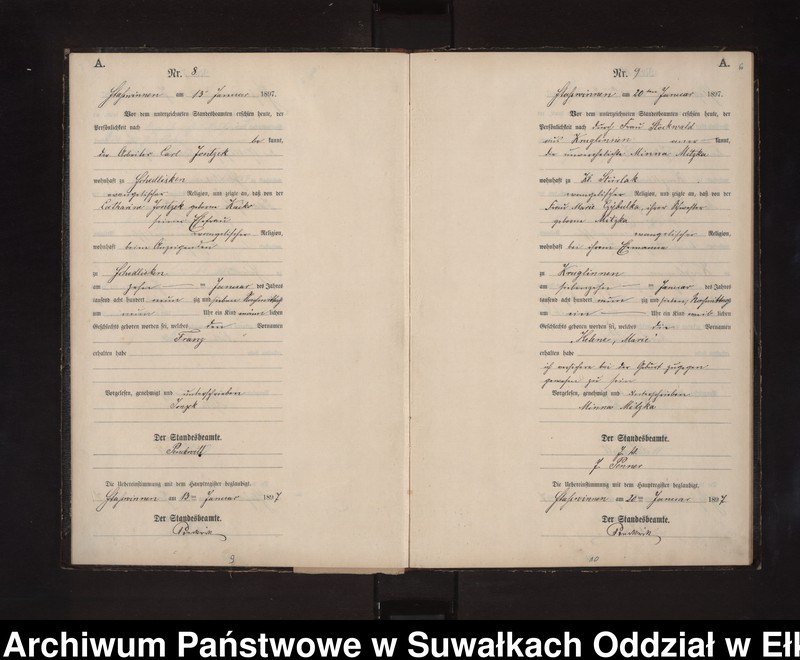 A.
Nr. 8
Staßwinnen am 13 Januar 1897.
Vor dem unterzeichneten Standesbeamten erschien heute, der
Persönlichkeit nach
be kannt,
der Arbeiter Carl
wohnhaft zu Schedlisken
evangelischer Religion, und zeigte an, daß von der
Catharina geborene
seiner Ehefrau
evangelischer Religion,
wohnhaft beim Anzeigenden
zu Schedlisken
am zehn ten Januar des Jahres
tausend acht hundert neun zig und sieben Nachmittags
um neun Uhr ein Kind männ lichen
Geschlechts geboren worden sei, welches den Vornamen
Franz
erhalten habe
Vorgelesen, genehmigt und unterschrieben
Der Standesbeamte.
Die Uebereinstimmung mit dem Hauptregister beglaubigt.
Staßwinnen am 13ten Januar 1897
Der Standesbeamte.
9
A.
6
Nr. 9
Staßwinnen am 20ten Januar 1897.
Vor dem unterzeichneten Standesbeamten erschien heute, der
Persönlichkeit nach durch Frau
aus Kruglinnen aner kannt,
die unverehelichte Minna Mitzka
wohnhaft zu Kl Stürlack
evangelischer Religion, und zeigte an, daß von der
Frau Marie ihrer Schwester
geborene Mitzka
evangelischer Religion,
wohnhaft bei ihrem Ehemanne
zu Kruglinnen
am siebenzehn ten Januar des Jahres
tausend acht hundert neun zig und sieben, Nachmittags
um ein Uhr ein Kind weib lichen
Geschlechts geboren worden sei, welches die Vornamen
Helene, Marie
erhalten habe
ich versichere bei der Geburt zugegen
gewesen zu sein
Vorgelesen, genehmigt und unterschrieben
Minna Mitzka
Der Standesbeamte.
J. Penner
Die Uebereinstimmung mit dem Hauptregister beglaubigt.
Staßwinnen am 20ten Januar 1897
Der Standesbeamte.
10
Archiwum Państwowe w Suwałkach Oddział w Eł